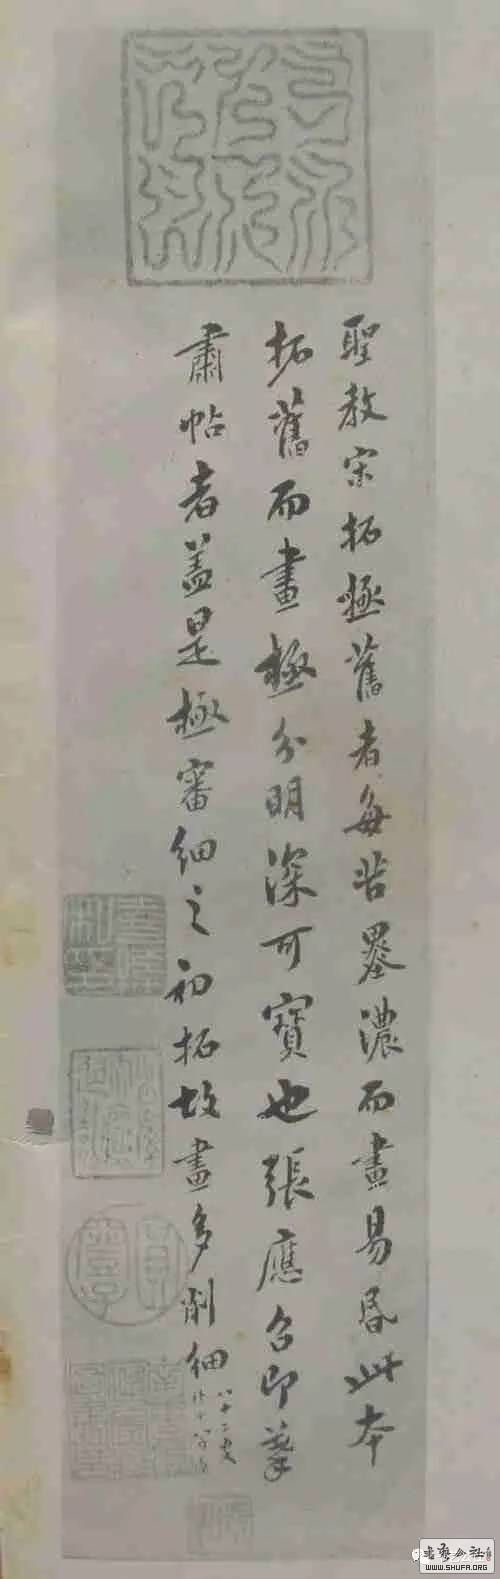 聖教宋拓極舊者每苦墨濃而畫易昏此本
拓舊而畫極分明深可寶也張應召即摹
肅帖者蓋是極審細之初拓故畫多削細
八十二叟
书艺公社
WWW.SHUFA.ORG